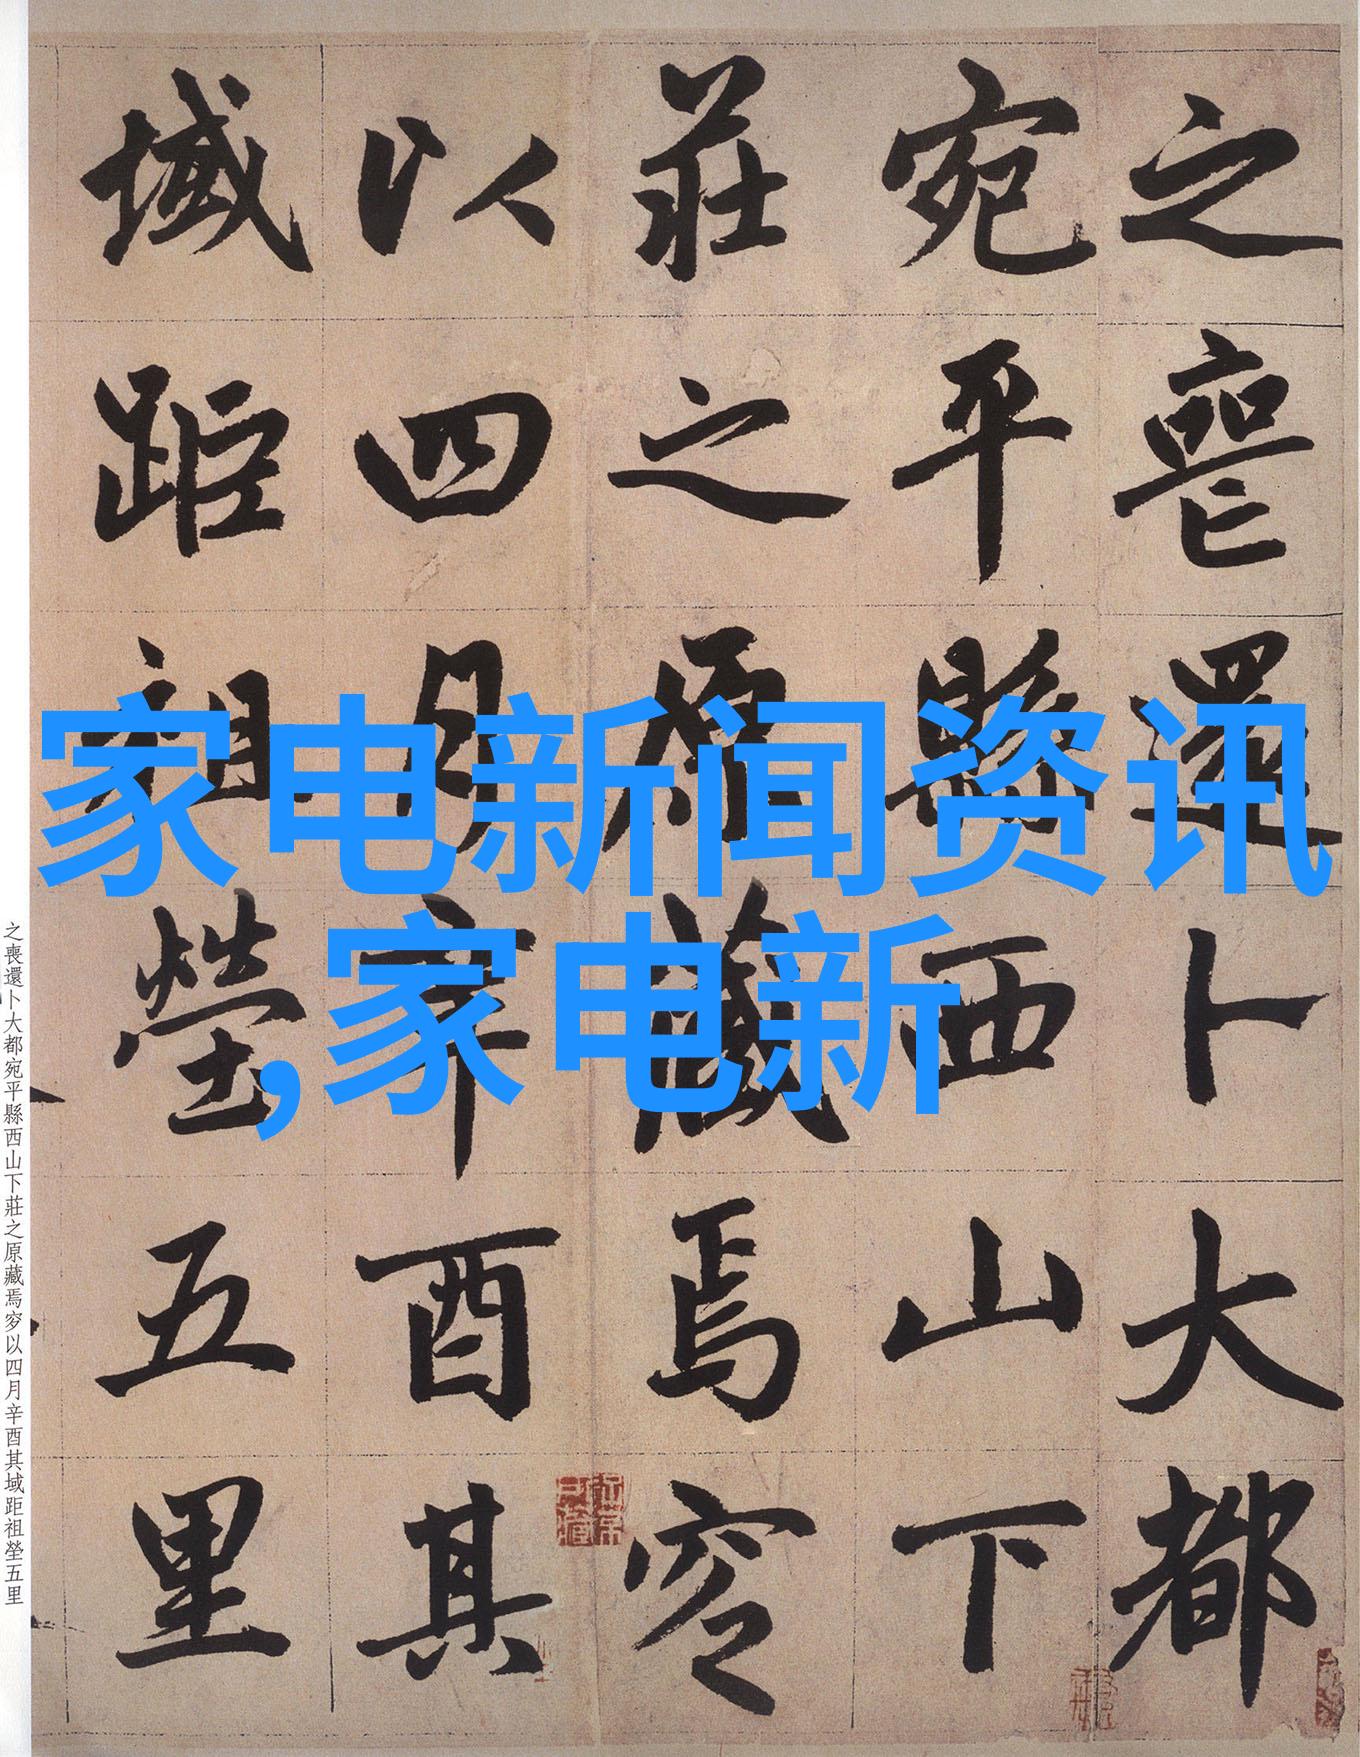 之喪還卜大都
宛平縣西山下
莊之原藏焉窆
以四月辛酉其
域距祖塋五里
家电新闻资讯
,家电新
之喪還卜大都宛平縣西山下莊之原藏焉窆以四月辛酉其域距祖塋五里